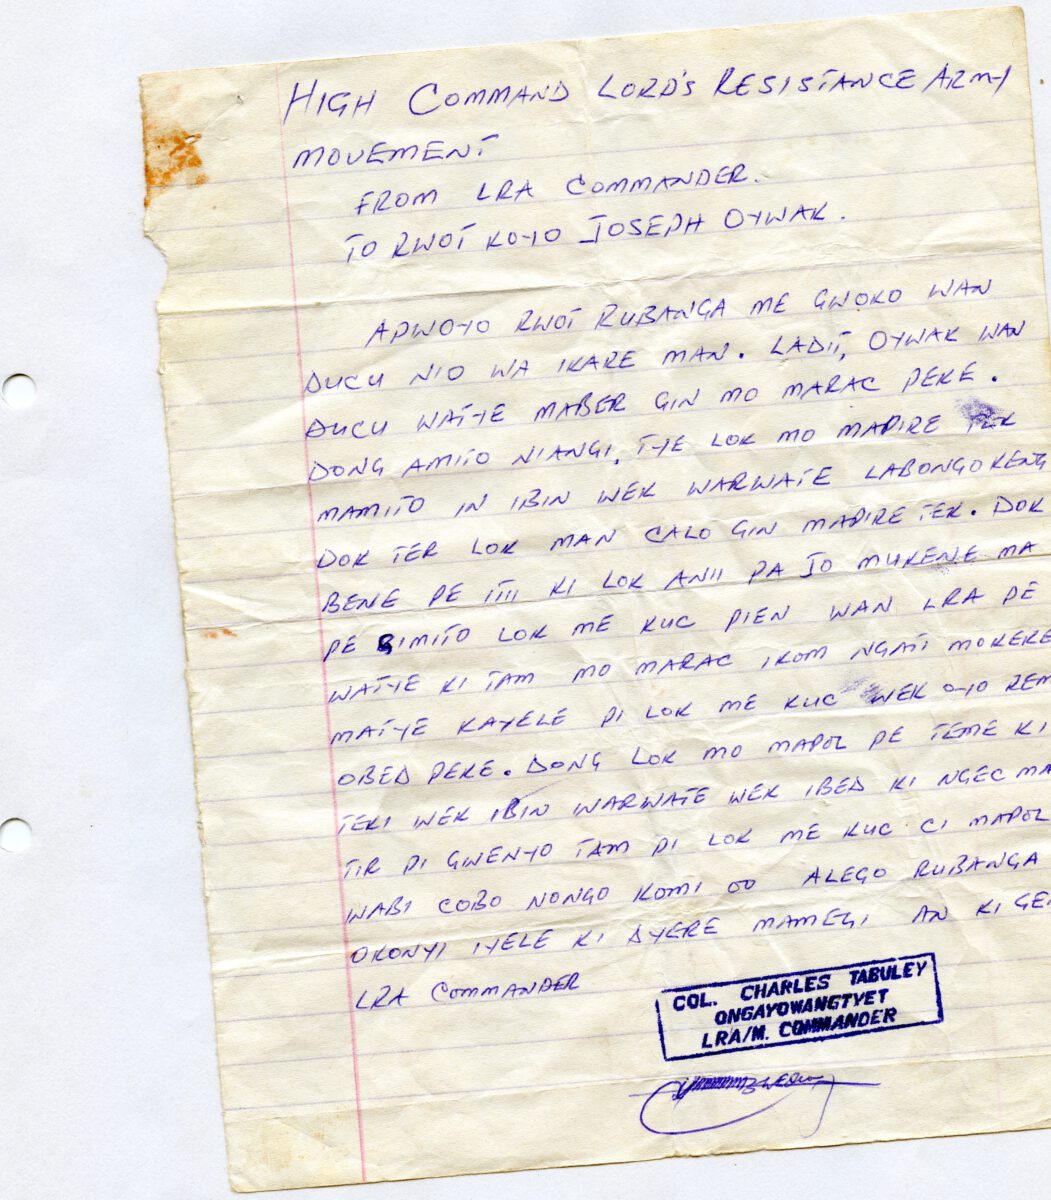 HIGH COMMAND LORD'S RESISTANCE ARMY
MOVEMENT
FROM LRA COMMANDER.
TO RWOT KOYO JOSEPH OYWAK.
APWOYO RWOT RUBANGA ME GWOKO WAN
DUCU NIO WA IKARE MAN. LADIT, OYWAK WAN
DUCU WATYE MABER GIN MO MARAC PEKE.
DONG AMITO NIANGI, TYE LOK MO MAPIRE TEK
MAMITO IN IBIN WEK WARWATE LABONGO KENG
DOK TER LOK MAN CALO GIN MAPIRE TEK. DOK
BENE PE ITII KI LOK ANII PA JO MUKENE MA
PE GIMITO LOK ME KUC PIEN WAN LRA PE
WATYE KI TAM MO MARAC IKOM NGATI MOKEKE
MATYE KAYELE PI LOK ME KUC WEK OYO REM
OBED PEKE. DONG LOK MO MAPOL PE TEME KI
TEKI WEK IBIN WARWATE WEK IBED KI NGEC MA
TIR PI GWENYO TAM PI LOK ME KUC CI MAPOL
WABI COBO NONGO KOMI OO ALEGO RUBANGA
OKONYI IYELE KI DYERE MAMEGI AN KI GEN
LRA COMMANDER
COL. CHARLES TABULEY
ONGAYOWANGTYET
LRA/M. COMMANDER